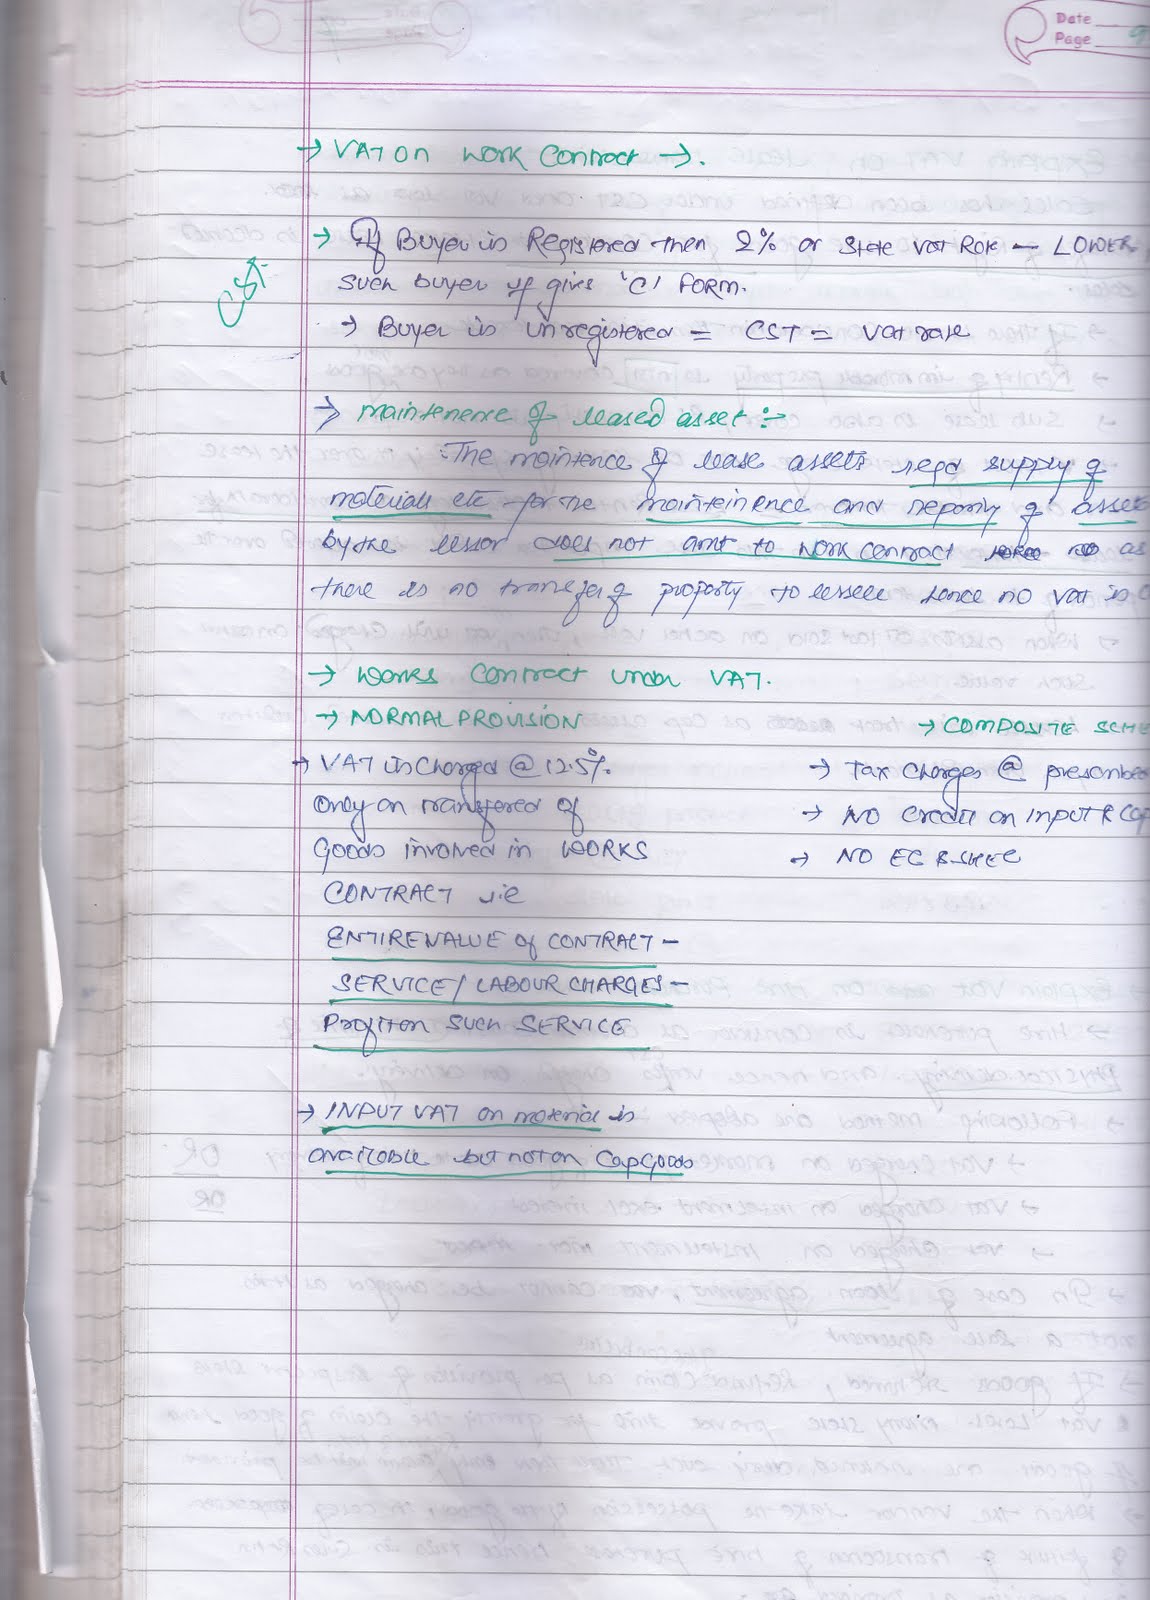 Date
Page 9
→ VAT ON WORK Contract →.
→ If Buyer is Registered then 2% or State Vat Rate — LOWER
CST
such buyer if gives 'C' FORM.
→ Buyer is unregistered = CST = Vat rate
→ maintenence of leased asset :-
The maintence of lease assets regd supply of
materials etc for the mainteinence and reparing of asset
by the lessor does not amt to work contract as
there is no transfer of property to lessee hence no vat is
→ Works Contract under VAT.
→ NORMAL PROVISION → COMPOSITE SCHE
→ VAT is Charged @ 12.5% → Tax Charges @ prescribe
Only on transfered of → NO Credit on INPUT & Cap
Goods involved in WORKS → NO EC & SHEC
CONTRACT i.e
ENTIRE VALUE of CONTRACT –
SERVICE / LABOUR CHARGES –
Profit on SUCH SERVICE
→ INPUT VAT on material is
available but not on Cap Goods